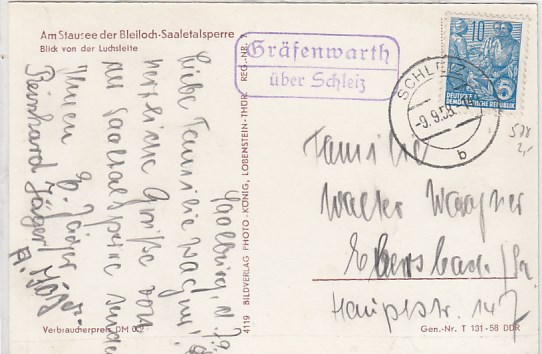 Am Stausee der Bleiloch-Saaletalsperre
Blick von der Luchsleite
Gräfenwarth
über Schleiz
SCHLEIZ
-9.9.58
b
10
5
DEUTSCHE
DEMOKRATISCHE REPUBLIK
Saalburg, d. 7.9.
Liebe Familie Wagner!
Herzliche Grüße von
der Saaletalsperre senden
Ihnen E. Jäger
Reinhard Jäger
A. Jäger
4119 BILDVERLAG PHOTO-KÖNIG, LOBENSTEIN-THÜR. REG.-NR.
Familie
Walter Wagner
Ebersbach/Sa.
Hauptstr. 147
Verbraucherpreis DM 0,2
Gen.-Nr. T 131-58 DDR